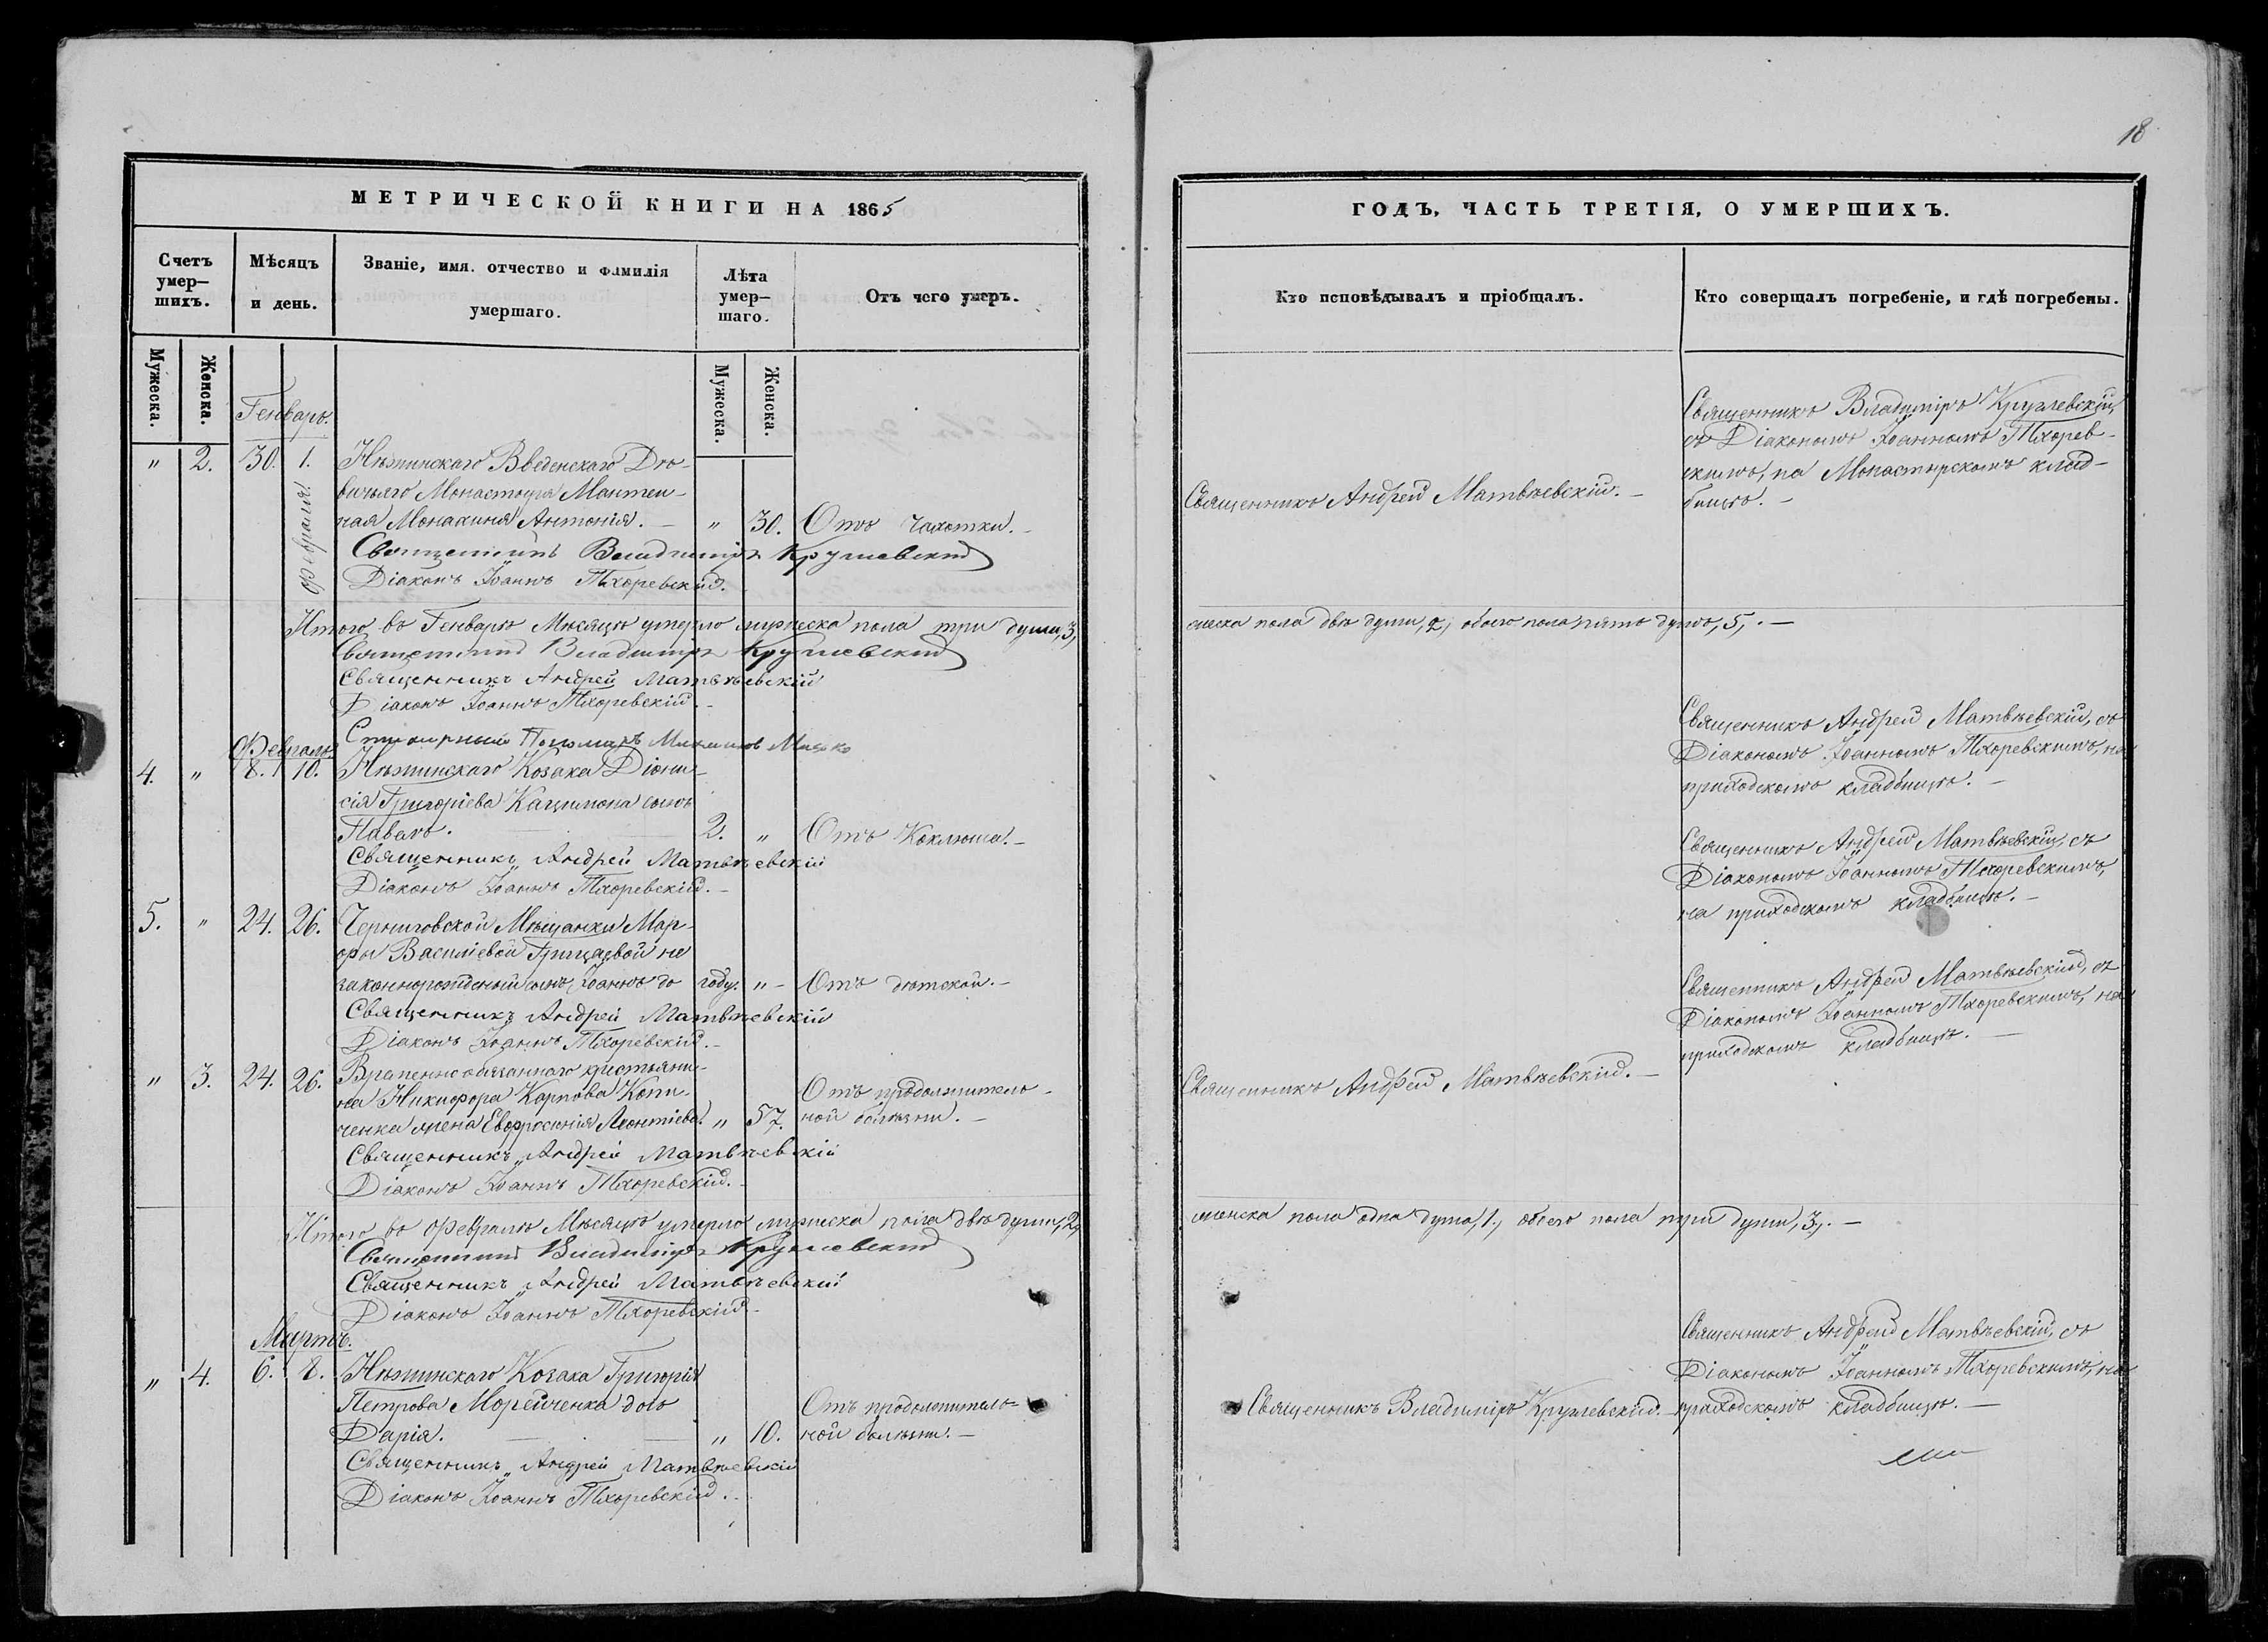 18
МЕТРИЧЕСКОЙ КНИГИ НА 1865
ГОДЪ, ЧАСТЬ ТРЕТІЯ, О УМЕРШИХЪ.
Счетъ умер-
шихъ.
Мѣсяцъ
и день.
Званіе, имя. отчество и фамилія
умершаго.
Лѣта
умер-
шаго.
Отъ чего умеръ.
Кто исповѣдывалъ и пріобщалъ.
Кто соверщалъ погребеніе, и гдѣ погребены.
Мужеска.
Женска.
Мужеска.
Женска.
Генварь.
" 2. 30. 1. Нѣжинскаго Введенскаго Дѣ-
февраля.
вичьяго Монастыря Мантей-
ная Монахиня Антонія. — " 30. Отъ Чахотки. —
Священникъ Владиміръ Круглевскій
Діаконъ Іоаннъ Тхоревскій.
Священникъ Андрей Матвѣевскій. —
Священникъ Владиміръ Круглевскій,
съ Діакономъ Іоанномъ Тхорев-
скимъ, на Монастырскомъ клад-
бищѣ. —
Итого въ Генварѣ Мѣсяцѣ умерло мужеска пола три души, 3,
женска пола двѣ души, 2, обоего пола пять душъ, 5, . —
Священникъ Владиміръ Круглевскій
Священникъ Андрей Матвѣевскій
Діаконъ Іоаннъ Тхоревскій. —
Пономарь
Февраль.
4. " 8. 10. Нѣжинскаго Козака Діони-
сія Григоріева Кацимона сынъ
Павелъ. — 2. " Отъ Коклюша. —
Священникъ Андрей Матвѣевскій
Діаконъ Іоаннъ Тхоревскій. —
Священникъ Андрей Матвѣевскій, съ
Діакономъ Іоанномъ Тхоревскимъ, на
приходскомъ кладбищѣ. —
5. " 24. 26. Черниговской Мѣщанки Мар-
фы Василіевой Грицаевой не
законнорожденый сынъ Іоаннъ до году. " — Отъ дѣтской. —
Священникъ Андрей Матвѣевскій
Діаконъ Іоаннъ Тхоревскій. —
Священникъ Андрей Матвѣевскій, съ
Діакономъ Іоанномъ Тхоревскимъ,
на приходскомъ кладбищѣ. —
" 3. 24. 26. Временнообязаннаго крестьяни-
на Никифора Карпова Копи-
ченка жена Евфросинія Леонтіева. " 57. Отъ продолжитель-
ной болѣзни. —
Священникъ Андрей Матвѣевскій
Діаконъ Іоаннъ Тхоревскій. —
Священникъ Андрей Матвѣевскій. —
Священникъ Андрей Матвѣевскій, съ
Діакономъ Іоанномъ Тхоревскимъ, на
приходскомъ кладбищѣ. —
Итого въ Февралѣ Мѣсяцѣ умерло мужеска пола двѣ души, 2,
женска пола одна душа, 1, обоего пола три души, 3, . —
Священникъ Владиміръ Круглевскій
Священникъ Андрей Матвѣевскій
Діаконъ Іоаннъ Тхоревскій —
Мартъ.
" 4. 6. 8. Нѣжинскаго Козака Григорія
Петрова Морейченка дочь
Дарія. — " 10. Отъ продолжитель-
ной болѣзни. —
Священникъ Андрей Матвѣевскій
Діаконъ Іоаннъ Тхоревскій. —
Священникъ Владиміръ Круглевскій. —
Священникъ Андрей Матвѣевскій, съ
Діакономъ Іоанномъ Тхоревскимъ, на
приходскомъ кладбищѣ. —